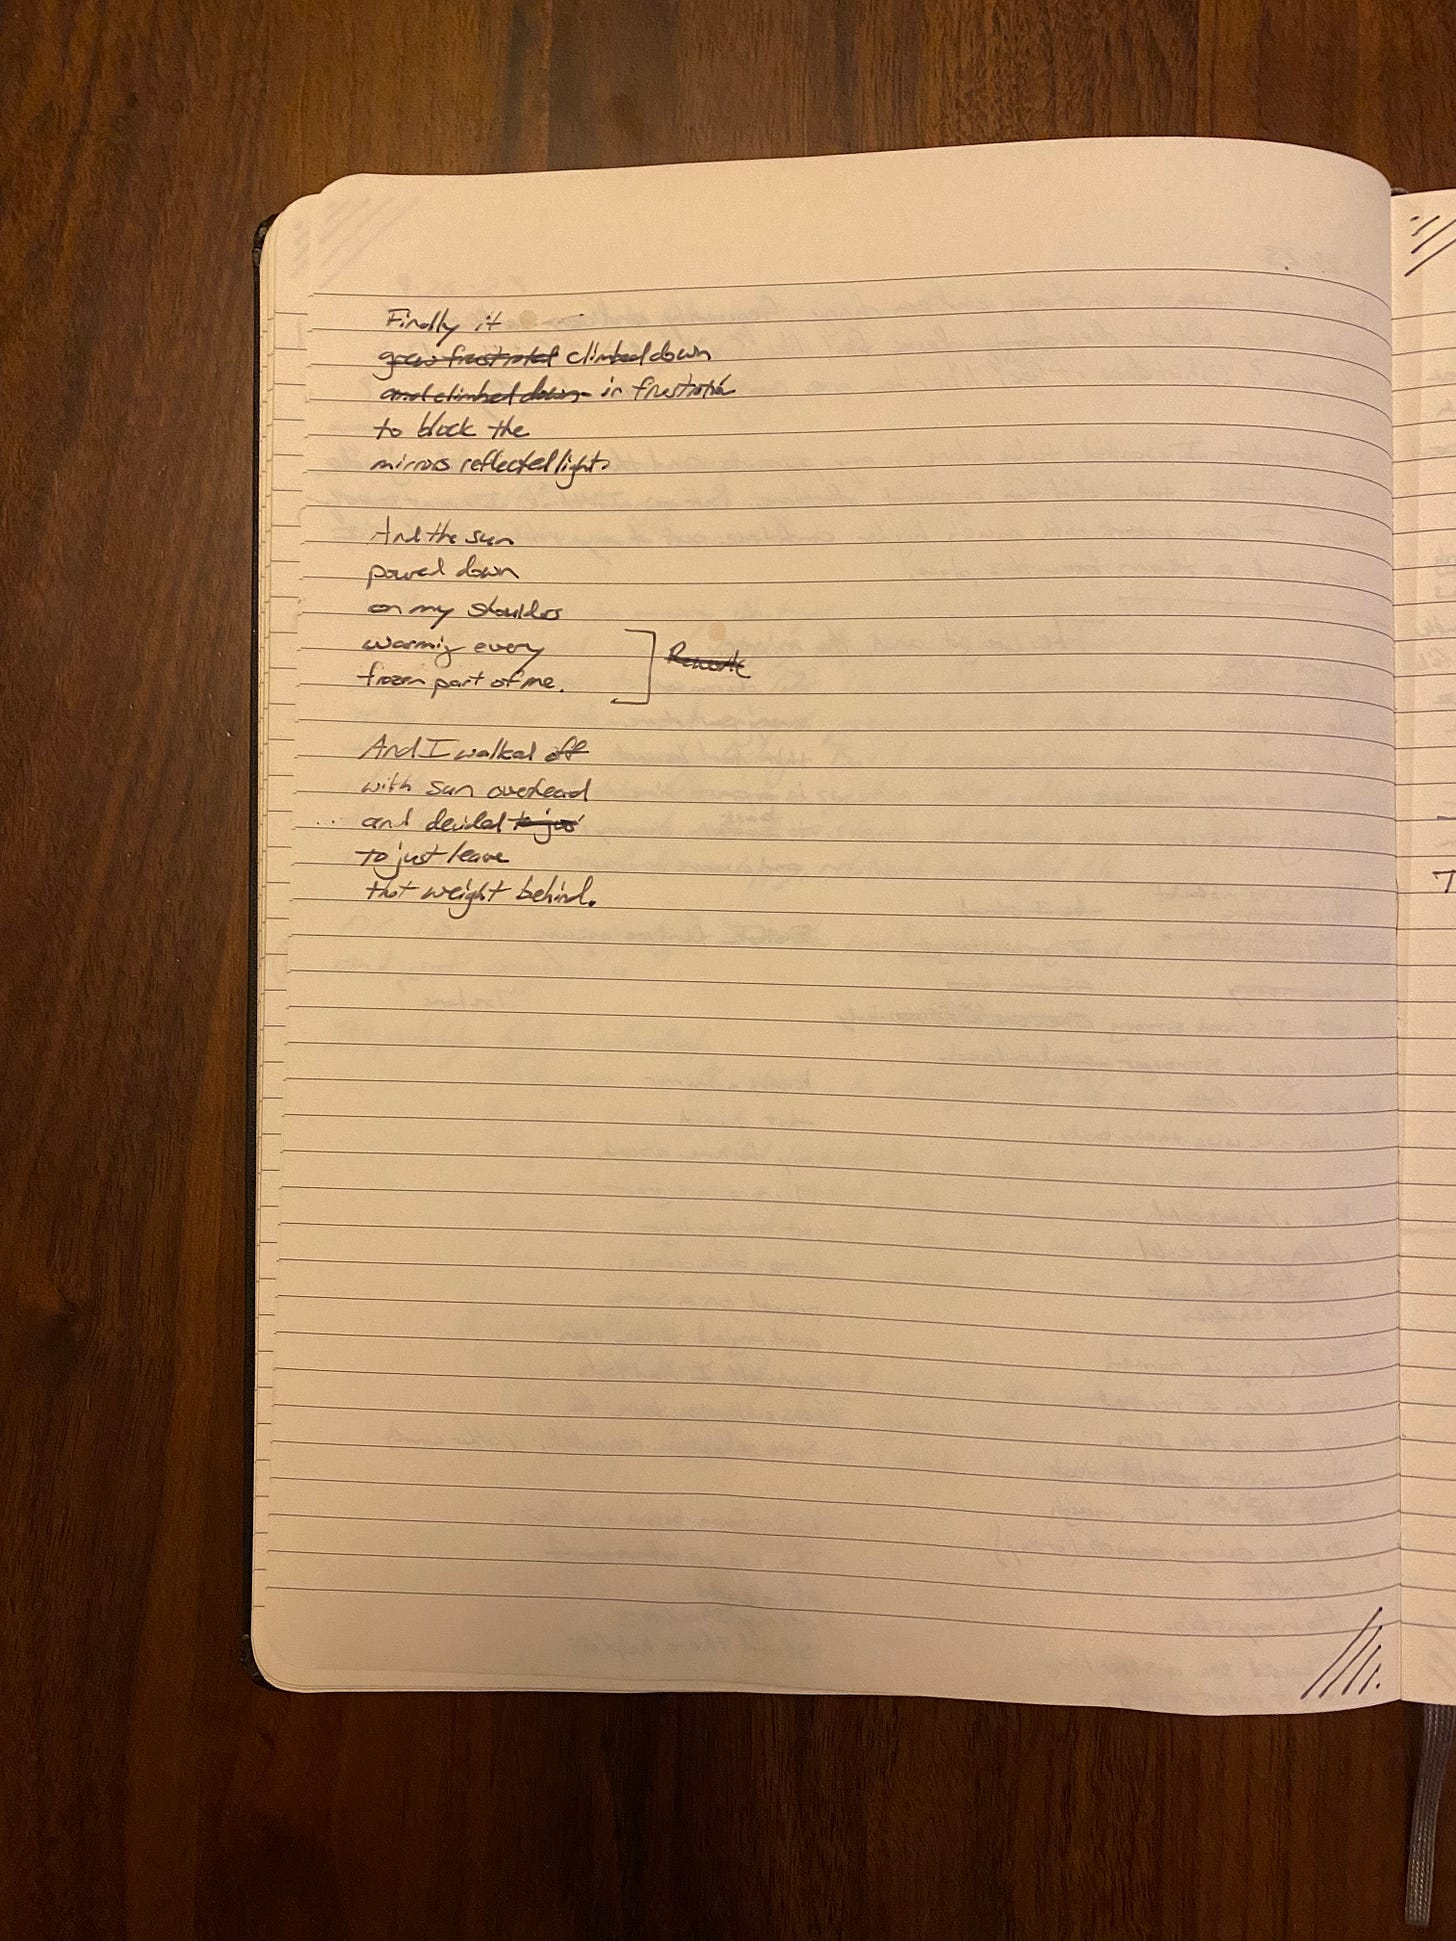 Finally it
~~grew frustrated~~ climbed down
~~and climbed down~~ in frustration
to block the
mirrors reflected light.
And the sun
poured down
on my shoulders
warming every
frozen part of me.
~~Rework~~
And I walked ~~off~~
with sun overhead
and decided ~~to jus~~
to just leave
that weight behind.